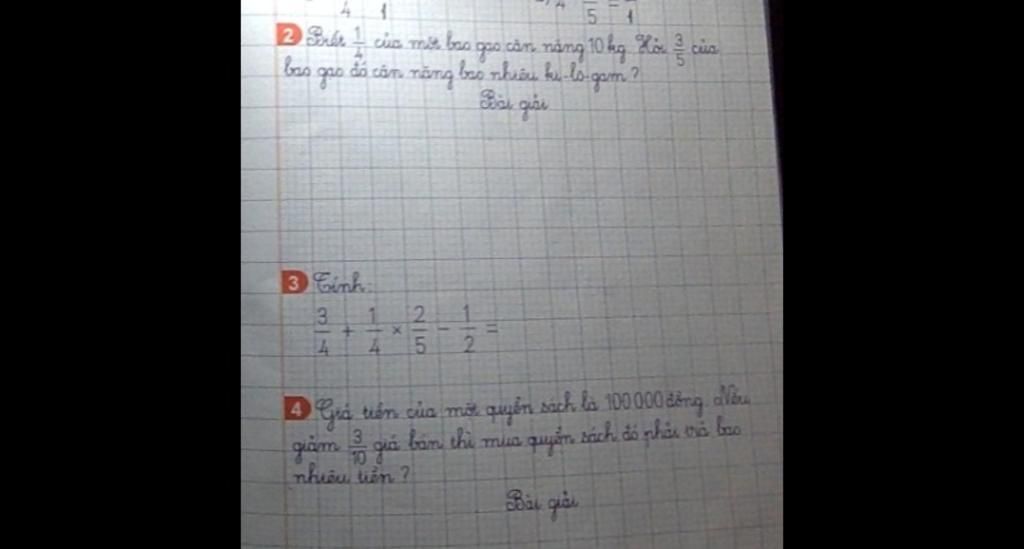 4 1
4 5 = 1
2 Biết 1/4 của một bao gạo cân nặng 10 kg. Hỏi 3/5 của
bao gạo đó cân nặng bao nhiêu ki-lô-gam?
Bài giải
3 Tính:
3/4 + 1/4 × 2/5 - 1/2 =
4 Giá tiền của một quyển sách là 100 000 đồng. Nếu
giảm 3/10 giá bán thì mua quyển sách đó phải trả bao
nhiêu tiền?
Bài giải